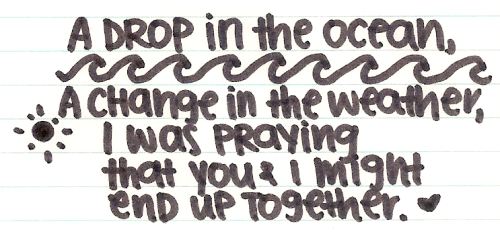 A DROP in the ocean,
A change in the weather,
I was praying
that you & I might
end up together.